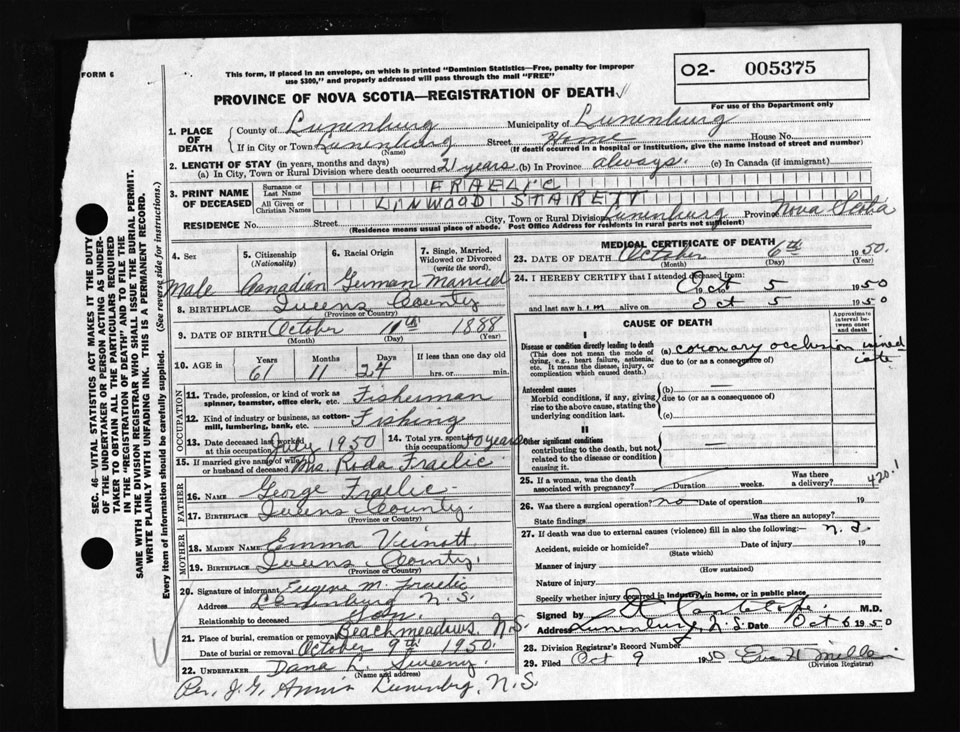 FORM 6
This form, if placed in an envelope, on which is printed "Dominion Statistics—Free, penalty for improper
use $300," and properly addressed will pass through the mail "FREE"
O2- 005375
For use of the Department only
PROVINCE OF NOVA SCOTIA—REGISTRATION OF DEATH
1. PLACE OF DEATH
County of Lunenburg Municipality of Lunenburg
If in City or Town Lunenburg Street Home House No.
(Name) (If death occurred in a hospital or institution, give the name instead of street and number)
2. LENGTH OF STAY (in years, months and days)
(a) In City, Town or Rural Division where death occurred 21 years (b) In Province always. (c) In Canada (if immigrant)
3. PRINT NAME OF DECEASED
Surname or Last Name FRAELIC
All Given or Christian Names LINWOOD STARETT
RESIDENCE No. Street City, Town or Rural Division Lunenburg Province Nova Scotia
(Residence means usual place of abode. Post Office Address for residents in rural parts not sufficient)
4. Sex 5. Citizenship (Nationality) 6. Racial Origin 7. Single, Married, Widowed or Divorced (write the word).
Male Canadian German Married
8. BIRTHPLACE Queens County
(Province or Country)
9. DATE OF BIRTH October 11th 1888
(Month) (Day) (Year)
10. AGE in Years Months Days If less than one day old
61 11 24 hrs. or min.
OCCUPATION
11. Trade, profession, or kind of work as spinner, teamster, office clerk, etc. Fisherman
12. Kind of industry or business, as cotton-mill, lumbering, bank, etc. Fishing
13. Date deceased last worked at this occupation July 1950 14. Total yrs. spent in this occupation 50 years
15. If married give name of wife or husband of deceased Mrs. Roda Fraelic
FATHER
16. NAME George Fraelic
17. BIRTHPLACE Queens County.
(Province or Country)
MOTHER
18. MAIDEN NAME Emma Vienott
19. BIRTHPLACE Queens County.
(Province or Country)
20. Signature of informant Eugene M. Fraelic
Address Lunenburg N.S.
Relationship to deceased son
21. Place of burial, cremation or removal Beachmeadows N.S.
Date of burial or removal October 9th 1950.
22. UNDERTAKER Dana L. Sweeny.
(Name and address)
Per. J.G. Lunenburg, N.S.
MEDICAL CERTIFICATE OF DEATH
23. DATE OF DEATH October 6th 1950.
(Month) (Day) (Year)
24. I HEREBY CERTIFY that I attended deceased from:
Oct 5 1950
and last saw him alive on Oct 5 1950
CAUSE OF DEATH
Approximate interval between onset and death
I
Disease or condition directly leading to death
(This does not mean the mode of dying, e.g., heart failure, asthenia, etc. It means the disease, injury, or complication which caused death.)
(a) coronary occlusion immediate
due to (or as a consequence of)
Antecedent causes
Morbid conditions, if any, giving rise to the above cause, stating the underlying condition last.
(b) —
due to (or as a consequence of)
(c)
II
Other significant conditions
contributing to the death, but not related to the disease or condition causing it. —
25. If a woman, was the death associated with pregnancy? Duration weeks. Was there a delivery? 420.1
26. Was there a surgical operation? no Date of operation 19
State findings Was there an autopsy?
27. If death was due to external causes (violence) fill in also the following:—
Accident, suicide or homicide? Date of injury 19
(State which)
Manner of injury
(How sustained)
Nature of injury
Specify whether injury occurred in industry, in home, or in public place
Signed by M.D.
Address Lunenburg, N.S. Date Oct 6 1950
28. Division Registrar's Record Number
29. Filed Oct 9 1950
(Division Registrar)
SEC. 46—VITAL STATISTICS ACT MAKES IT THE DUTY
OF THE UNDERTAKER OR PERSON ACTING AS UNDER-
TAKER TO OBTAIN ALL THE PARTICULARS REQUIRED
IN THE "REGISTRATION OF DEATH" AND TO FILE THE
SAME WITH THE DIVISION REGISTRAR WHO SHALL ISSUE THE BURIAL PERMIT.
WRITE PLAINLY WITH UNFADING INK. THIS IS A PERMANENT RECORD.
Every item of information should be carefully supplied. (See reverse side for instructions.)